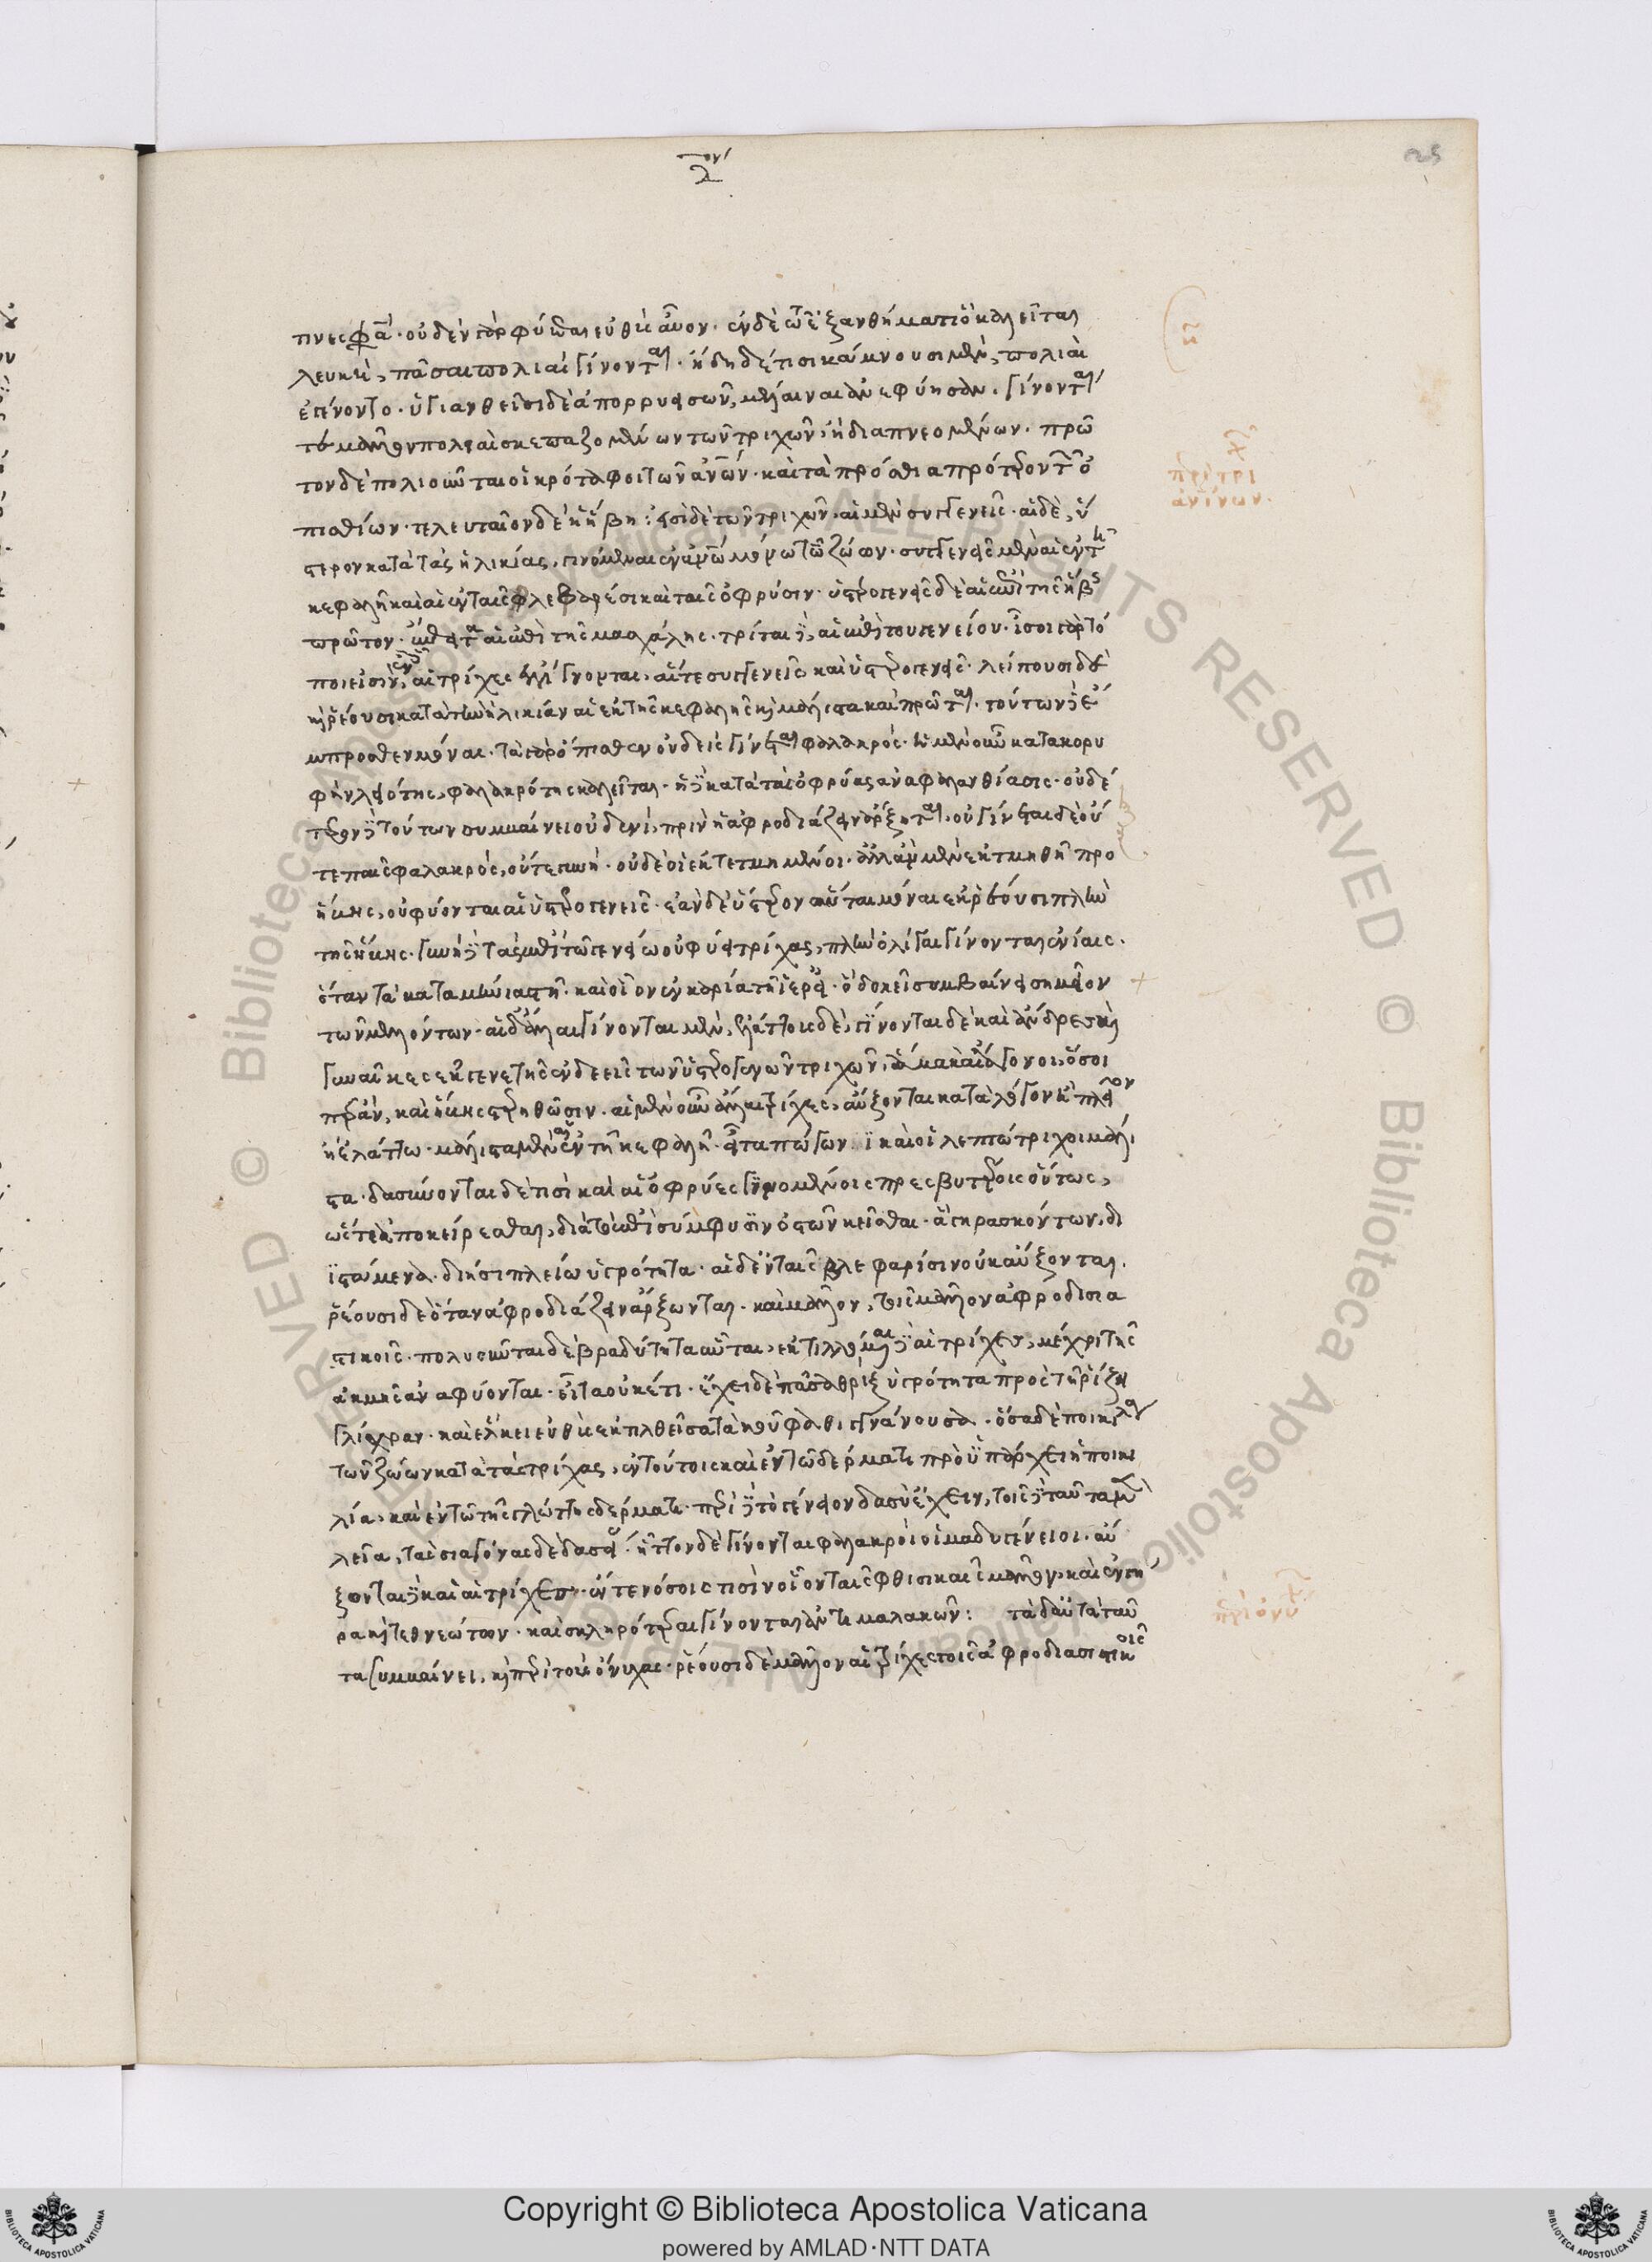 λ ον
25
τινες φα· οὐδὲν γὰρ φύεται εὐθὺς αὖον· ἐν δὲ τῷ ἐξανθήματι ὃ καλεῖται
λευκὴ, πᾶσαι πολιαὶ γίνονται· ἤδη δέ τισι κάμνουσι μὲν, πολιαὶ
ἐγένοντο· ὑγιανθεῖσι δὲ ἀπορρυεισῶν, μέλαιναι ἀνεφύησαν. γίνονται
μᾶλλον πολιαὶ σκεπαζομένων τῶν τριχῶν, ἢ διαπνεομένων. πρῶ
τον δὲ πολιοῦνται οἱ κρόταφοι τῶν ἀνων· καὶ τὰ πρόσθια πρότερον τῶν ὀ
πισθίων· τελευταῖον δὲ ἡ ἥβη: εἰσὶ δὲ τῶν τριχῶν, αἱ μὲν συγγενεῖς· αἱ δὲ, ὕ
στερον κατὰ τὰς ἡλικίας, γινόμεναι ἐν ἀνω μόνω τῶν ζώων· συγγενεῖς μὲν αἱ ἐν τῆ
κεφαλῆ καὶ αἱ ἐν ταῖς φλεβαρίσι καὶ ταῖς ὀφρύσιν· ὑστερογενεῖς δὲ αἱ ἐπὶ τῆς ἥβης
πρῶτον· ἔπειτα αἱ ἐπὶ τῆς μασχάλης· τρίται δὲ, αἱ ἐπὶ τοῦ γενείου· ἴσοι γὰρ τό
ποι εἰσὶν, ἐν οἷς αἱ τρίχες ἐγγίγνονται, αἵ τε συγγενεῖς καὶ ὑστερογενεῖς· λείπουσι δὲ
καὶ ῥέουσι κατὰ τὴν ἡλικίαν αἱ ἐκ τῆς κεφαλῆς καὶ μάλιστα καὶ πρῶται. τούτων δὲ ἔ
μπροσθεν μόναι· τὰ γὰρ ὄπισθεν οὐδεὶς γίνεται φαλακρός· ἡ μὲν οὖν κατὰ κορυ
φὴν λειότης, φαλακρότης καλεῖται· ἡ δὲ κατὰ τὰς ὀφρύας ἀναφαλανθίασις· οὐδέ
τερον δὲ τούτων συμβαίνει οὐδενὶ, πρὶν ἢ ἀφροδιάζειν ἄρξηται, οὐ γίνεται δὲ οὔ
τε παῖς φαλακρός, οὔτε γυνή· οὐδὲ οἱ ἐκτετμημένοι· ἀλλ' ἂν μὲν ἐκτμηθῆ πρὸ
ἥβης, οὐ φύονται αἱ ὑστερογενεῖς· ἐὰν δὲ ὕστερον αὗται μόναι ἐκρέουσι πλὴν
τῆς ἥβης· γυνὴ δὲ τὰς ἐπὶ τῶ γενείω οὐ φύει τρίχας, πλὴν ὀλίγαι γίνονται ἐνίαις·
ὅταν τὰ καταμήνια στῆ· καὶ οἷον ἐν καρία τῆ ἱερεία· ὃ δοκεῖ συμβαίνειν σημεῖον
τῶν μελλόντων· αἱ δ' ἄλλαι γίνονται μὲν, ἐλάττους δὲ, γίνονται δὲ καὶ ἄνδρες καὶ
γυναῖκες ἐκ γενετῆς ἐνδεεῖς τῶν ὑστερογενῶν τριχῶν, ἅμα καὶ ἄγονοι, ὅσοι
περ ἂν, καὶ ἥβης στερηθῶσιν. αἱ μὲν οὖν ἄλλαι τρίχες, αὔξονται κατὰ λόγον ἢ πλεῖον
ἢ ἐλάττω· μάλιστα μὲν αἱ ἐν τῆ κεφαλῆ· εἶτα πώγων καὶ οἱ λεπτότριχοι μάλι
στα· δασύνονται δὲ τισὶ καὶ αἱ ὀφρύες γινομένοις πρεσβυτέροις οὕτως,
ὥστε ἀποκείρεσθαι, διὰ τὸ ἐπὶ σύμφυσιν ὀστῶν κεῖσθαι· ἃ γηρασκόντων, δι
ϊστάμενα· διήσι πλείω ὑγρότητα· αἱ δὲ ἐν ταῖς βλεφαρίσιν οὐκ αὔξονται.
ῥέουσι δὲ ὅταν ἀφροδιάζειν ἄρξωνται· καὶ μᾶλλον, τοῖς μᾶλλον ἀφροδισια
στικοῖς· πολιοῦνται δὲ βραδύτητα αὗται, ἐκτιλλόμεναι δὲ αἱ τρίχες, μέχρι τῆς
ἀκμῆς ἀναφύονται· εἶτα οὐκέτι· ἔχει δὲ πᾶσα θρὶξ ὑγρότητα πρὸς τῆ ῥίζη
γλίσχραν· καὶ ἕλκει εὐθὺς ἐκτιλθεῖσα τὰ κοῦφα θιγγάνουσα. ὅσα δὲ ποικίλα
τῶν ζώων κατὰ τὰς τρίχας, ἐν τούτοις καὶ ἐν τῶ δέρματι προϋπάρχει ἡ ποικι
λία, καὶ ἐν τῶ τῆς γλώττης δέρματι· περὶ δὲ τὸ γένειον δασὺ ἔχειν, τοῖς δὲ ταῦτα μὲν
λεῖα, τὰς σιαγόνας δὲ δασεῖς· ἧττον δὲ γίνονται φαλακροὶ οἱ μαδυγένειοι. αὔ
ξονται δὲ καὶ αἱ τρίχες ἔν τε νόσοις τισὶν οἷον ταῖς φθίσι καὶ μᾶλλον, καὶ ἐν γή
ρα καὶ τεθνεώτων· καὶ σκληρότεραι γίνονται ἀντὶ μαλακῶν: τὰ δ' αὐτὰ ταῦ
τα συμβαίνει, καὶ περὶ τοὺς ὄνυχας· ῥέουσι δὲ μᾶλλον αἱ τρίχες τοῖς ἀφροδισιαστικοῖς
περὶ τρι
ἀνίνων·